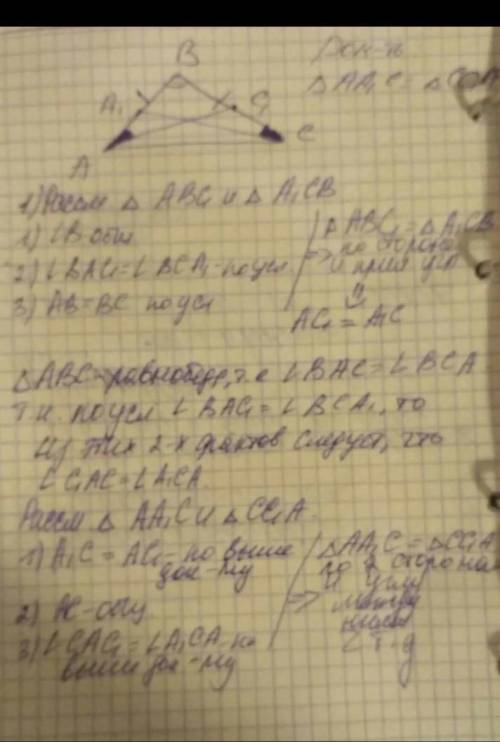 B
Док-ть
△ AA₁C = △ CC₁A
A₁
C₁
A
C
1) Рассм △ ABC₁ и △ A₁CB
1) ∠B общ
2) ∠BAC₁ = ∠BCA₁ - по усл
3) AB = BC по усл
⇒ △ ABC₁ = △ A₁CB
по стороне
и прил угл
⇓
AC₁ = A₁C
△ABC - равнобедр, т.е ∠BAC = ∠BCA
т.к. по усл ∠BAC₁ = ∠BCA₁, то
из этих 2-х фактов следует, что
∠C₁AC = ∠A₁CA
Рассм △ AA₁C и △ CC₁A
1) A₁C = AC₁ - по выше
док-му
2) AC - общ
3) ∠CAC₁ = ∠A₁CA - по
выше док-му
⇒ △AA₁C = △CC₁A
по 2 сторонам
и углу
между
ними
ч.т.д